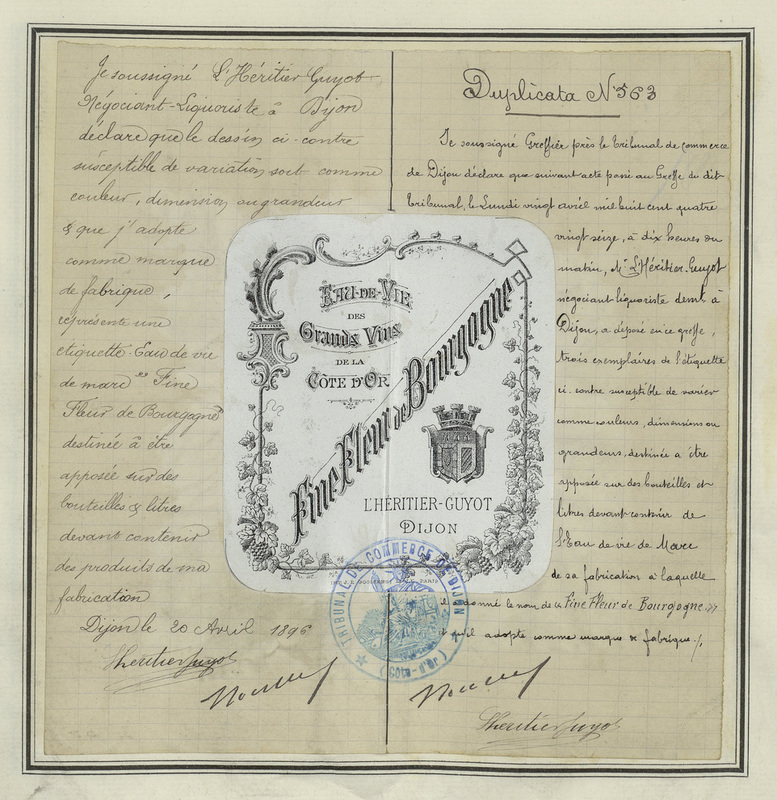 Je soussigné L'Héritier-Guyot
Négociant-Liquoriste à Dijon
déclare que le dessin ci-contre
susceptible de variation soit comme
couleur, dimension ou grandeur
& que j'adopte
comme marque
de fabrique,
représente une
etiquette Eau de vie
de marc "Fine
Fleur de Bourgogne"
destinée à être
apposée sur des
bouteilles & litres
devant contenir
des produits de ma
fabrication
Dijon le 20 Avril 1896
Lheritier Guyot
Duplicata N° 563
Je soussigné Greffier près le tribunal de commerce
de Dijon déclare que suivant acte passé au Greffe du dit
tribunal, le Lundi vingt avril mil huit cent quatre
vingt seize, à dix heures du
matin, Mr L'Héritier-Guyot
négociant liquoriste demt à
Dijon, a déposé en ce greffe,
trois exemplaires de l'étiquette
ci-contre susceptible de varier
comme couleurs, dimensions ou
grandeurs, destinée à être
apposée sur des bouteilles et
litres devant contenir de
l'Eau de vie de Marc
de sa fabrication à laquelle
il donné le nom de "Fine Fleur de Bourgogne"
et qu'il adopte comme marque de fabrique ./.
Lheritier Guyot
EAU-DE-VIE
DES
Grands Vins
DE LA
CÔTE D'OR
Fine Fleur de Bourgogne
L'HÉRITIER-GUYOT
DIJON
PARIS
TRIBUNAL DE COMMERCE DE DIJON
(Côte-d'Or)